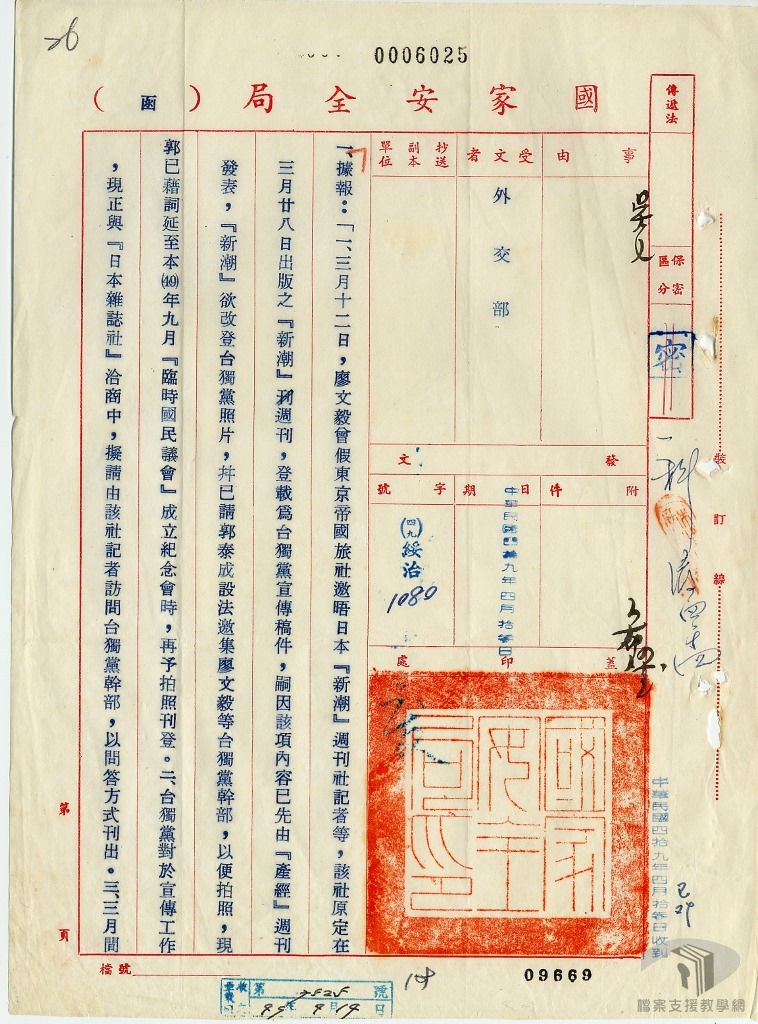 0006025
國家安全局（函）
傳遞法
保密區分
密
事由
受文者
外交部
抄送副本單位
發文
附件
日期
中華民國四拾九年四月拾零日
字號
(四九)綏治
1080
蓋印處
國家安全局印
一、據報：「一、三月十二日，廖文毅曾假東京帝國旅社邀晤日本『新潮』週刊社記者等，該社原定在
三月廿八日出版之『新潮』週刊，登載爲台獨黨宣傳稿件，嗣因該項內容已先由『產經』週刊
發表，『新潮』欲改登台獨黨照片，幷已請郭泰成設法邀集廖文毅等台獨黨幹部，以便拍照，現
郭已藉詞延至本(49)年九月『臨時國民議會』成立紀念會時，再予拍照刊登。二、台獨黨對於宣傳工作
，現正與『日本雜誌社』洽商中，擬請由該社記者訪問台獨黨幹部，以問答方式刊出。三、三月間
裝訂線
一科
中華民國四拾九年四月拾零日收到
第頁
檔號
09669
收文
第 號
年 月 日
檔案支援教學網